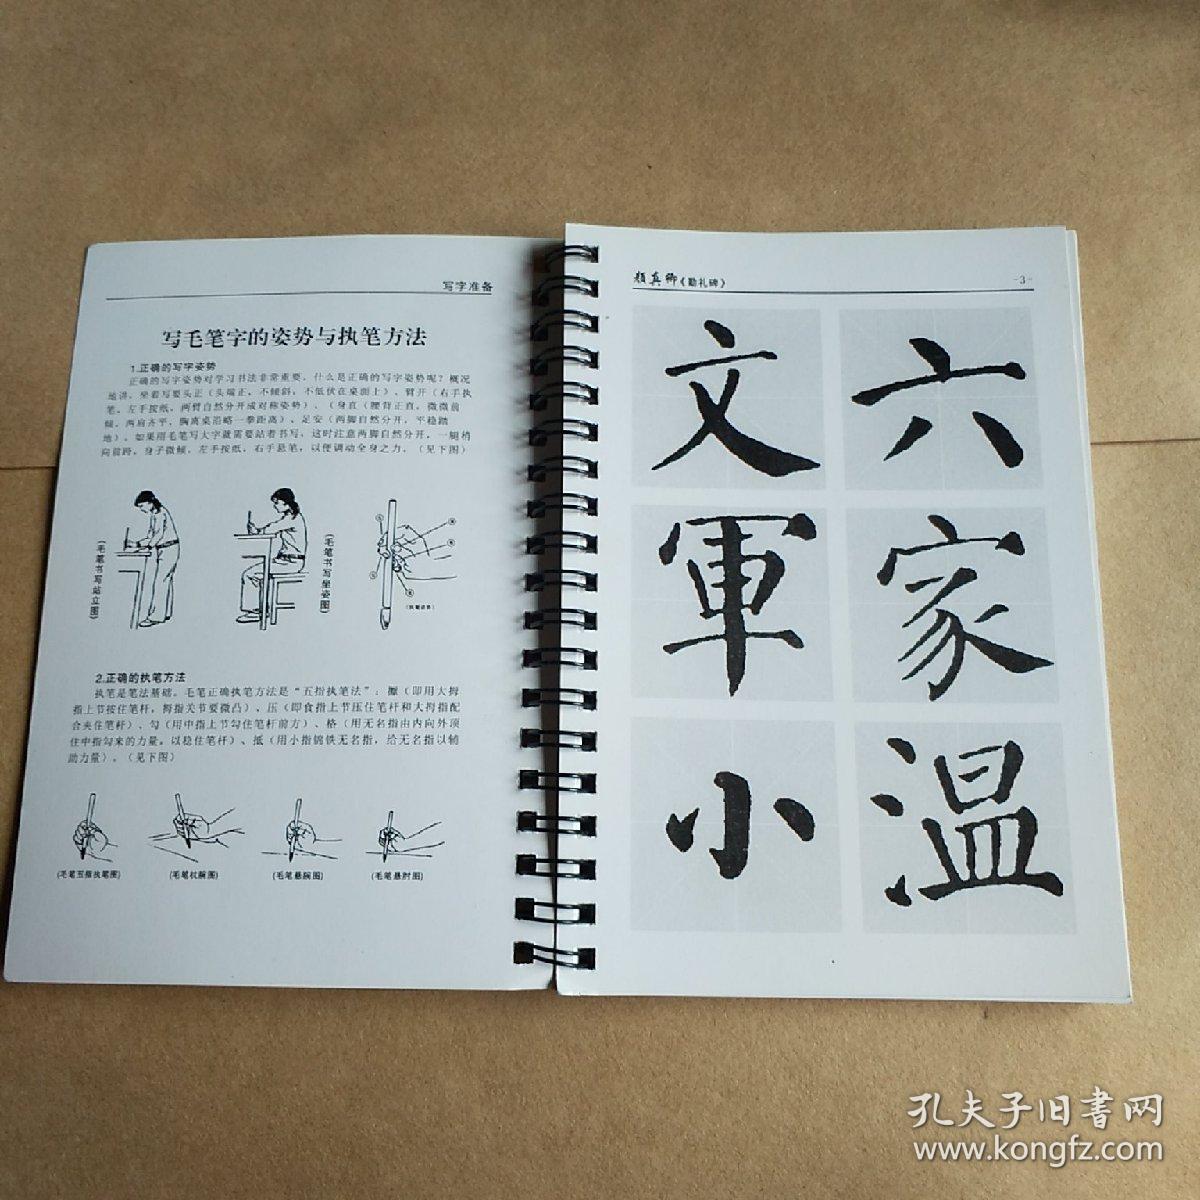 写字准备
写毛笔字的姿势与执笔方法
1.正确的写字姿势
正确的写字姿势对学习书法非常重要。什么是正确的写字姿势呢？概况
地讲，坐着写要头正（头端正，不倾斜，不低伏在桌面上）、臂开（右手执
笔，左手按纸，两臂自然分开成对称姿势）、（身直（腰背正直，微微前
倾，两肩齐平，胸离桌沿略一拳距离）、足安（两脚自然分开，平稳踏
地）。如果用毛笔写大字就需要站着书写，这时注意两脚自然分开，一腿稍
向前跨，身子微倾，左手按纸，右手悬笔，以便调动全身之力。（见下图）
(毛笔书写站立图)
(毛笔书写坐姿图)
2.正确的执笔方法
执笔是笔法基础。毛笔正确执笔方法是“五指执笔法”：擫（即用大拇
指上节按住笔杆，拇指关节要微凸）、压（即食指上节压住笔杆和大拇指配
合夹住笔杆）、勾（用中指上节勾住笔杆前方）、格（用无名指由内向外顶
住中指勾来的力量，以稳住笔杆）、抵（用小指锦铁无名指，给无名指以辅
助力量）。（见下图）
(毛笔五指执笔图)
(毛笔枕腕图)
(毛笔悬腕图)
(毛笔悬肘图)
颜真卿《勤礼碑》
-3-
六
家
温
文
軍
小
孔夫子旧書网
www.kongfz.com